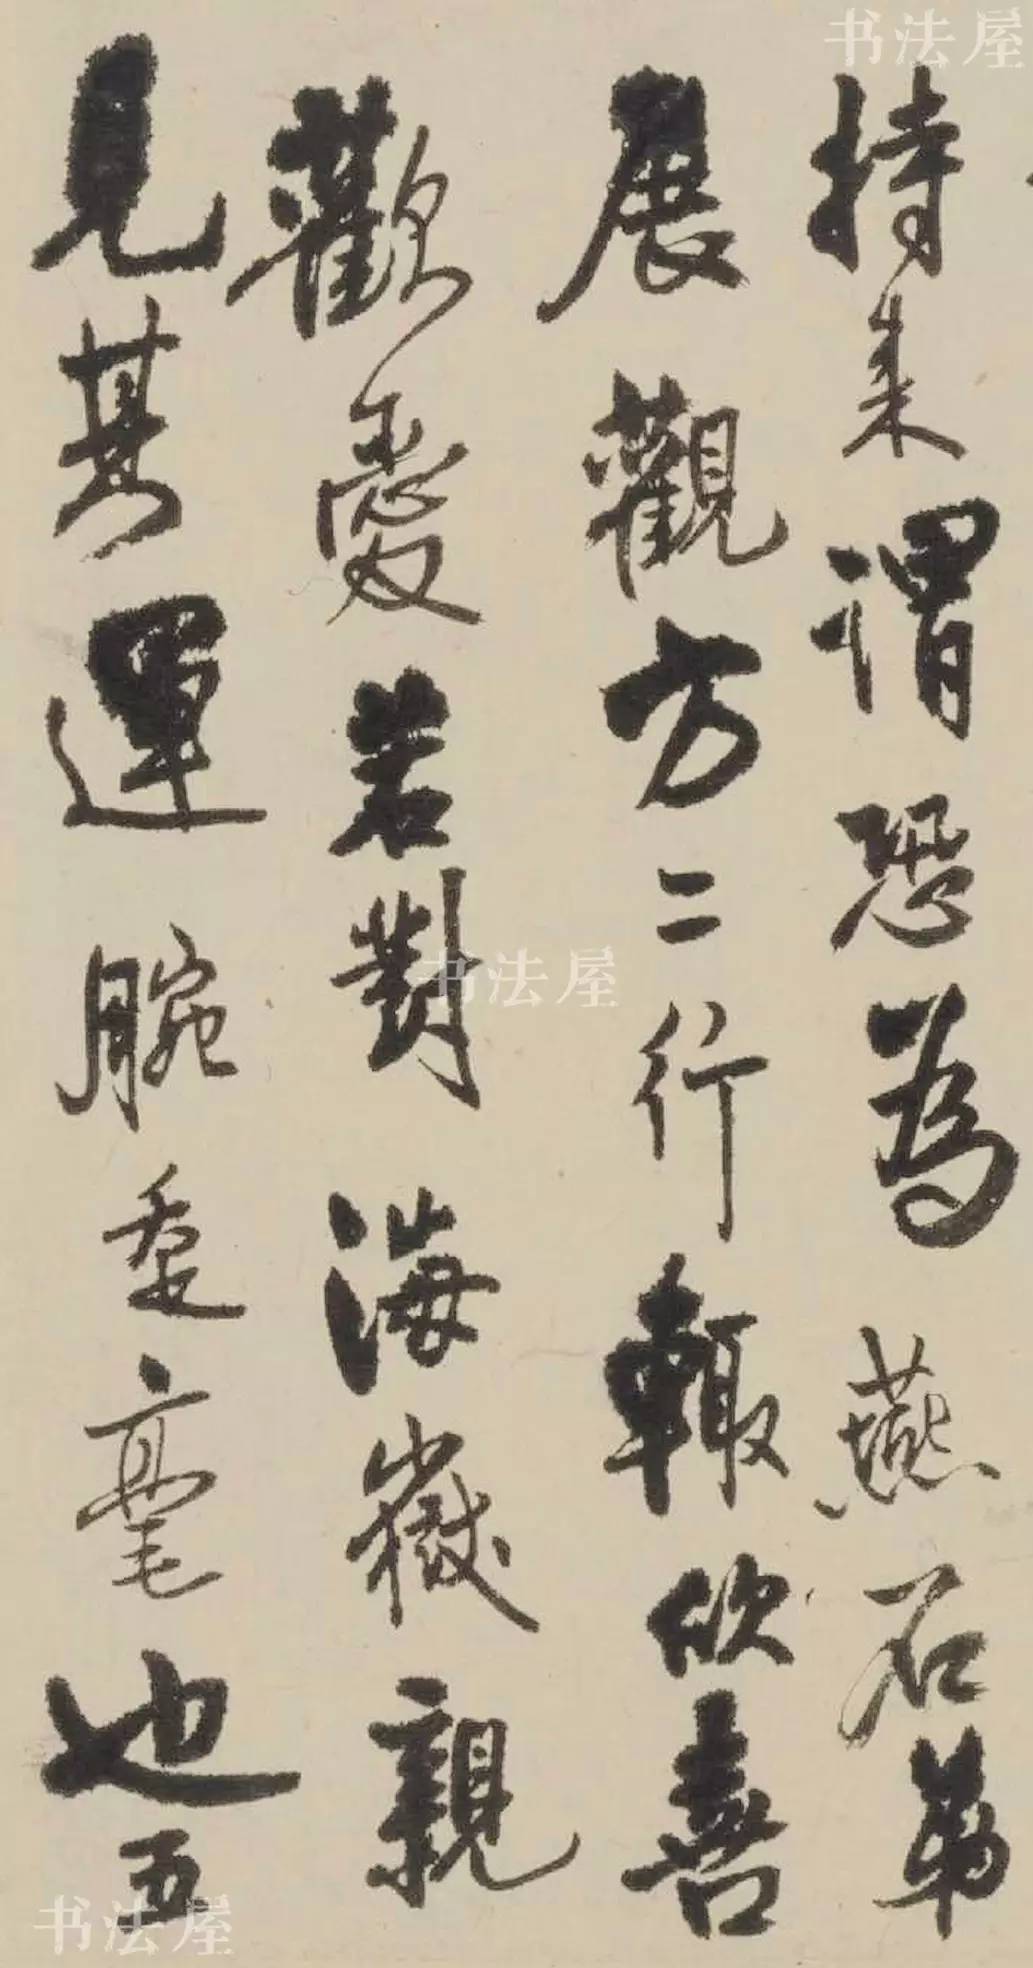 书法屋
持来謂恐為燕石弟
展觀方二行輙欣喜
歡愛若對海嶽親
书法屋
見其運腕垂毫也五
书法屋